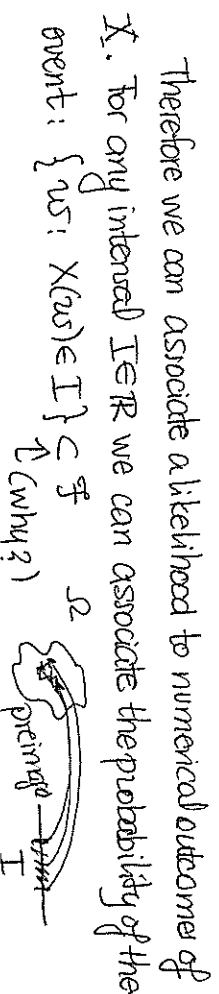 Therefore we can associate a likelihood to numerical outcomes of
X. For any interval I∈ℝ we can associate the probability of the
event: {ω: X(ω)∈I} ⊂ ℱ
↑ (why?)
Ω
preimage
I